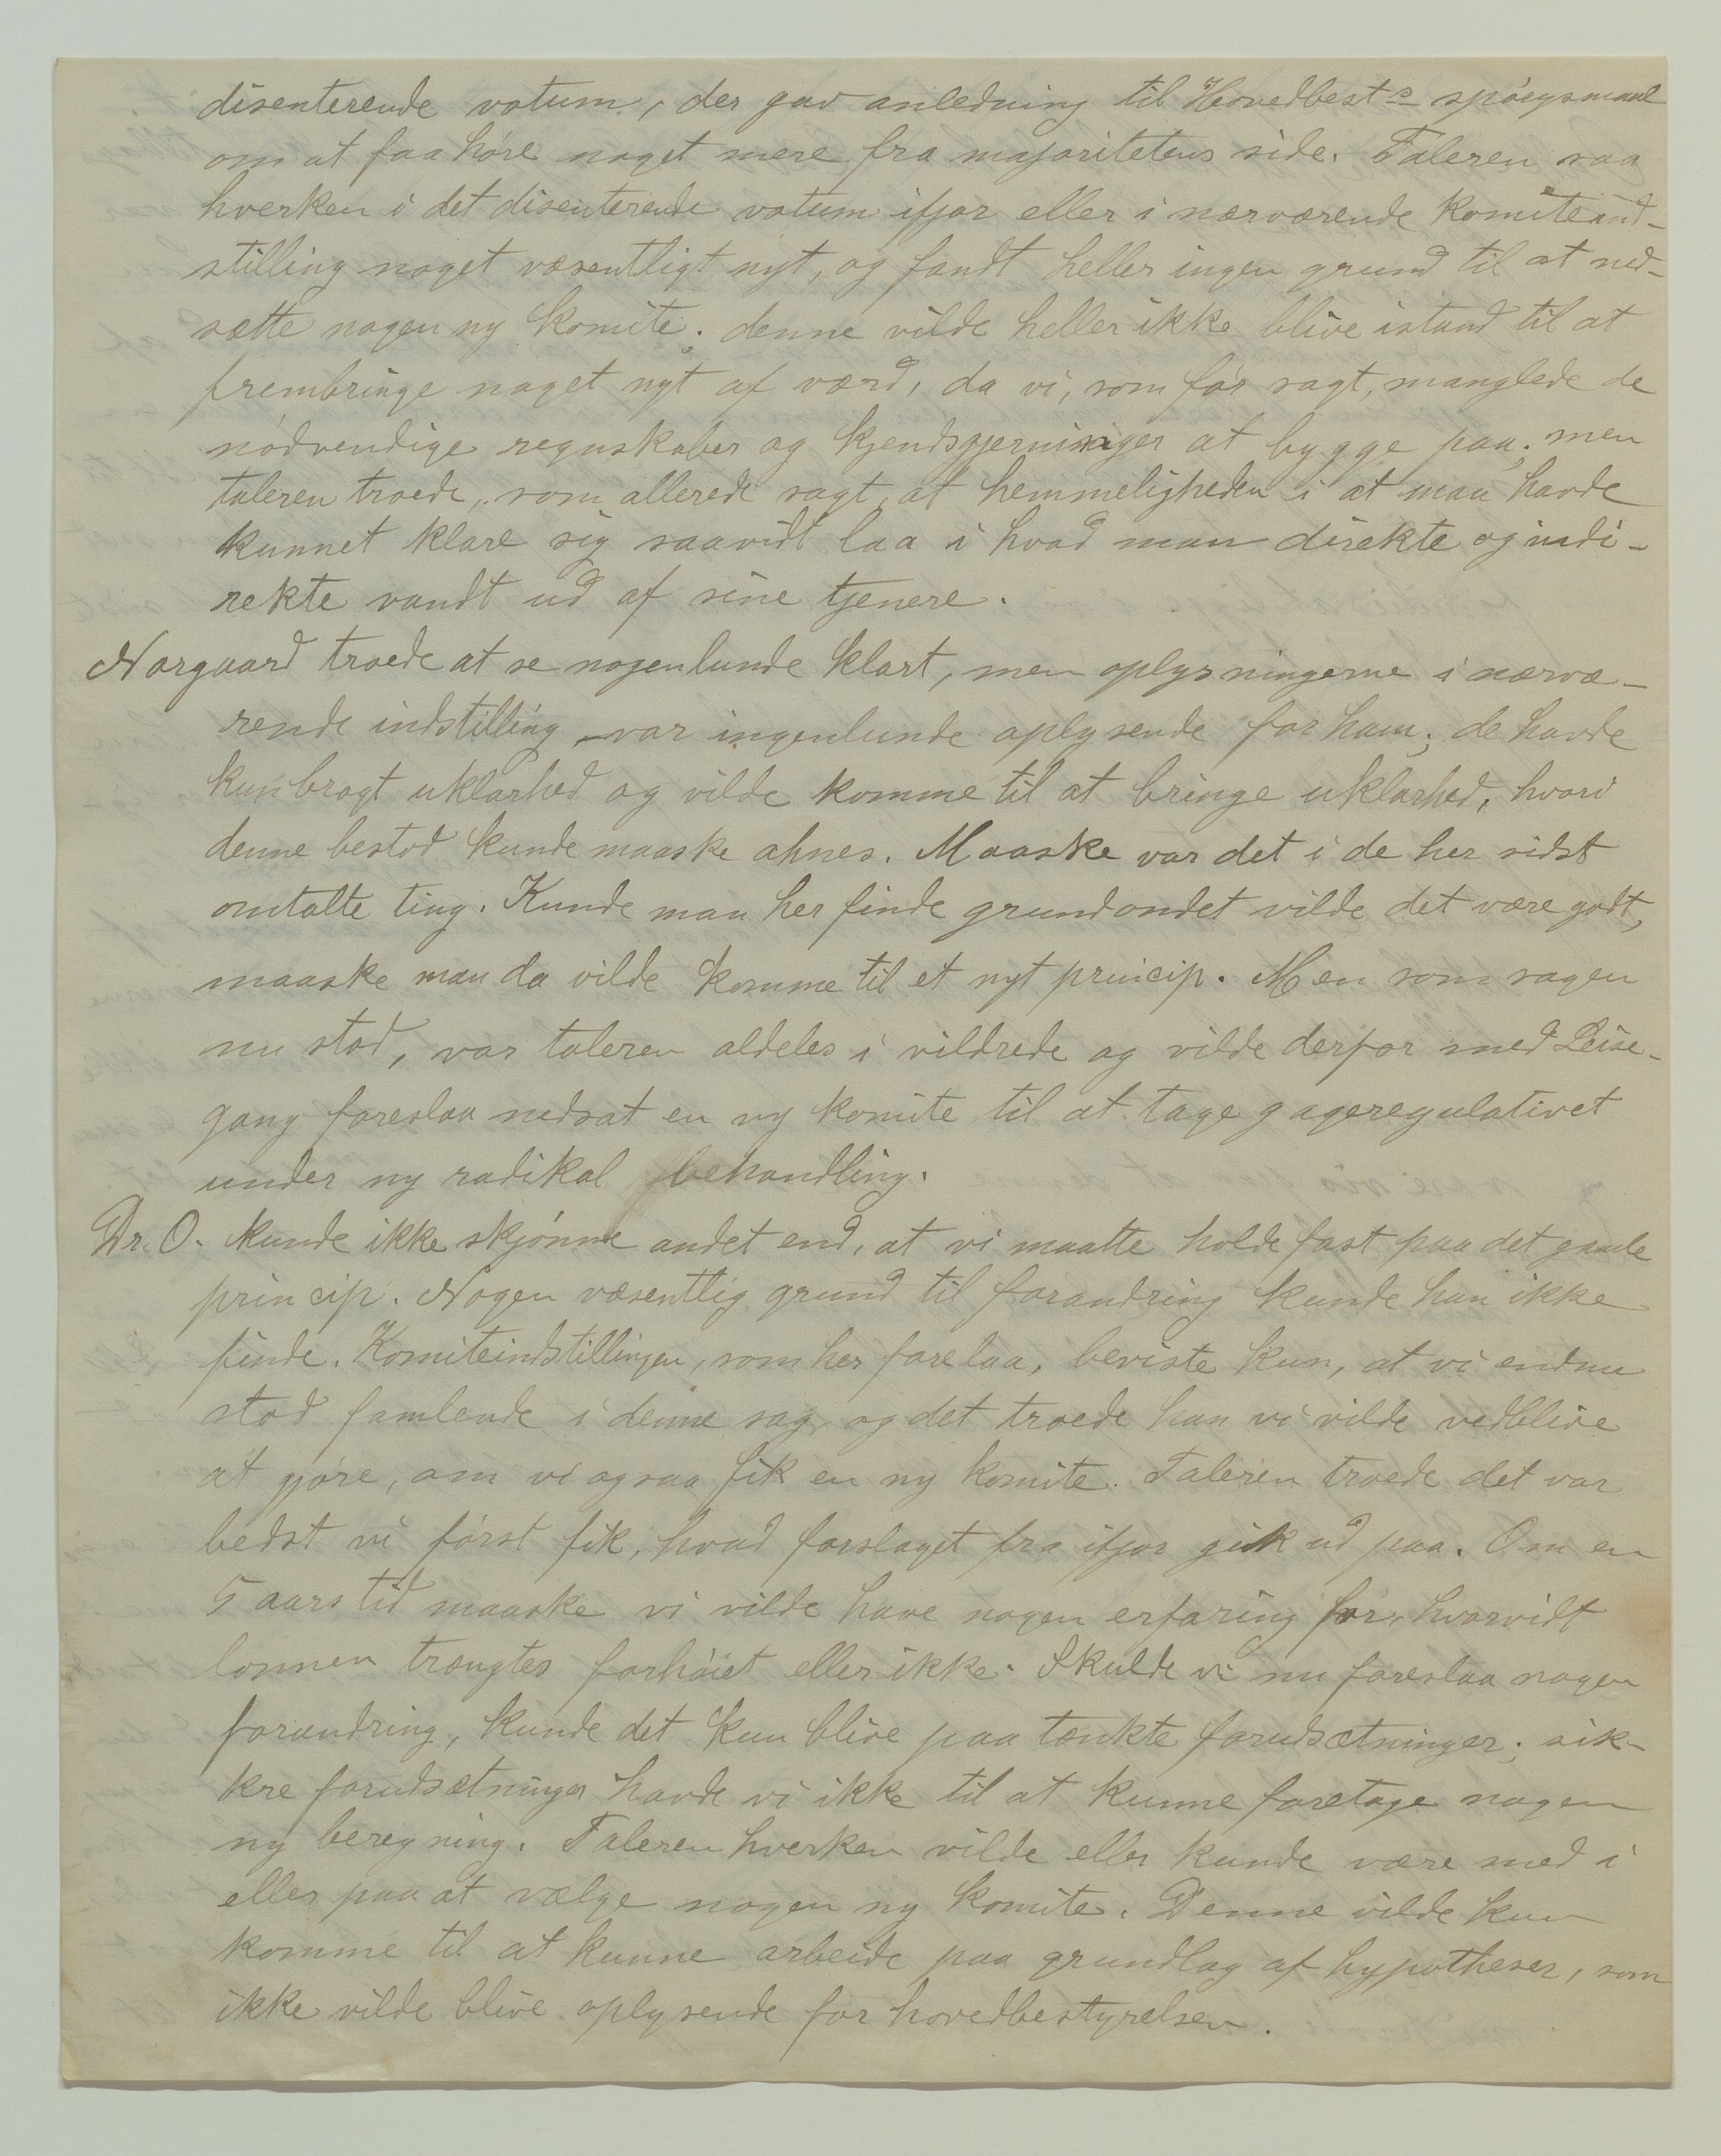 disenterende votum, der gav anledning til Hovedbest.s spöegsmaal
om at faa høre noget mere fra majoritetens side. Taleren saa
hverken i det disenterende votum ifjor eller i nærværende komiteind-
stilling noget væsentligt nyt, og fandt heller ingen grund til at ned-
sætte nogen ny komite; denne vilde heller ikke blive istand til at
frembringe noget nyt af værd, da vi, som før sagt, manglede de
nödvendige regnskaber og kjendsgjerninger at bygge paa; men
taleren troede, som allerede sagt, at hemmeligheden i at man havde
kunnet klare sig saavidt laa i hvad man direkte og indi-
rekte vandt ud af sine tjenere.
Norgaard troede at se nogenlunde klart, men oplysningerne i nærvæ-
rende indstilling var ingenlunde oplysende for ham; de havde
kun bragt uklarhed og vilde komme til at bringe uklarhed, hvori
denne bestod kunde maaske ahnes. Maaske var det i de her sidst
omtalte ting. Kunde man her finde grundondet vilde det være godt,
maaske man da vilde komme til et nyt princip. Men som sagen
nu stod, var taleren aldeles i vildrede og vilde derfor med Leise-
gang foreslaa nedsat en ny komite til at tage gageregulativet
under ny radikal behandling.
Dr. O. kunde ikke skjönne andet end, at vi maatte holde fast paa det gamle
princip. Nogen væsentlig grund til forandring kunde han ikke
finde. Komiteindstillingen, som her forelaa, beviste kun, at vi endnu
stod famlende i denne sag, og det troede han vi vilde vedblive
at gjøre, om vi ogsaa fik en ny komite. Taleren troede det var
bedst vi först fik, hvad forslaget fra ifjor gik ud paa. Om en
5 aars tid maaske vi vilde have nogen erfaring for, hvorvidt
lønnen trængtes forhöiet eller ikke. Skulde vi nu foreslaa nogen
forandring, kunde det kun blive paa tænkte forudsætninger; sik-
kre forudsætninger havde vi ikke til at kunne foretage nogen
ny beregning. Taleren hverken vilde eller kunde være med i
eller paa at vælge nogen ny komite. Denne vilde kun
komme til at kunne arbeide paa grundlag af hypotheser, som
ikke vilde blive oplysende for hovedbestyrelsen.